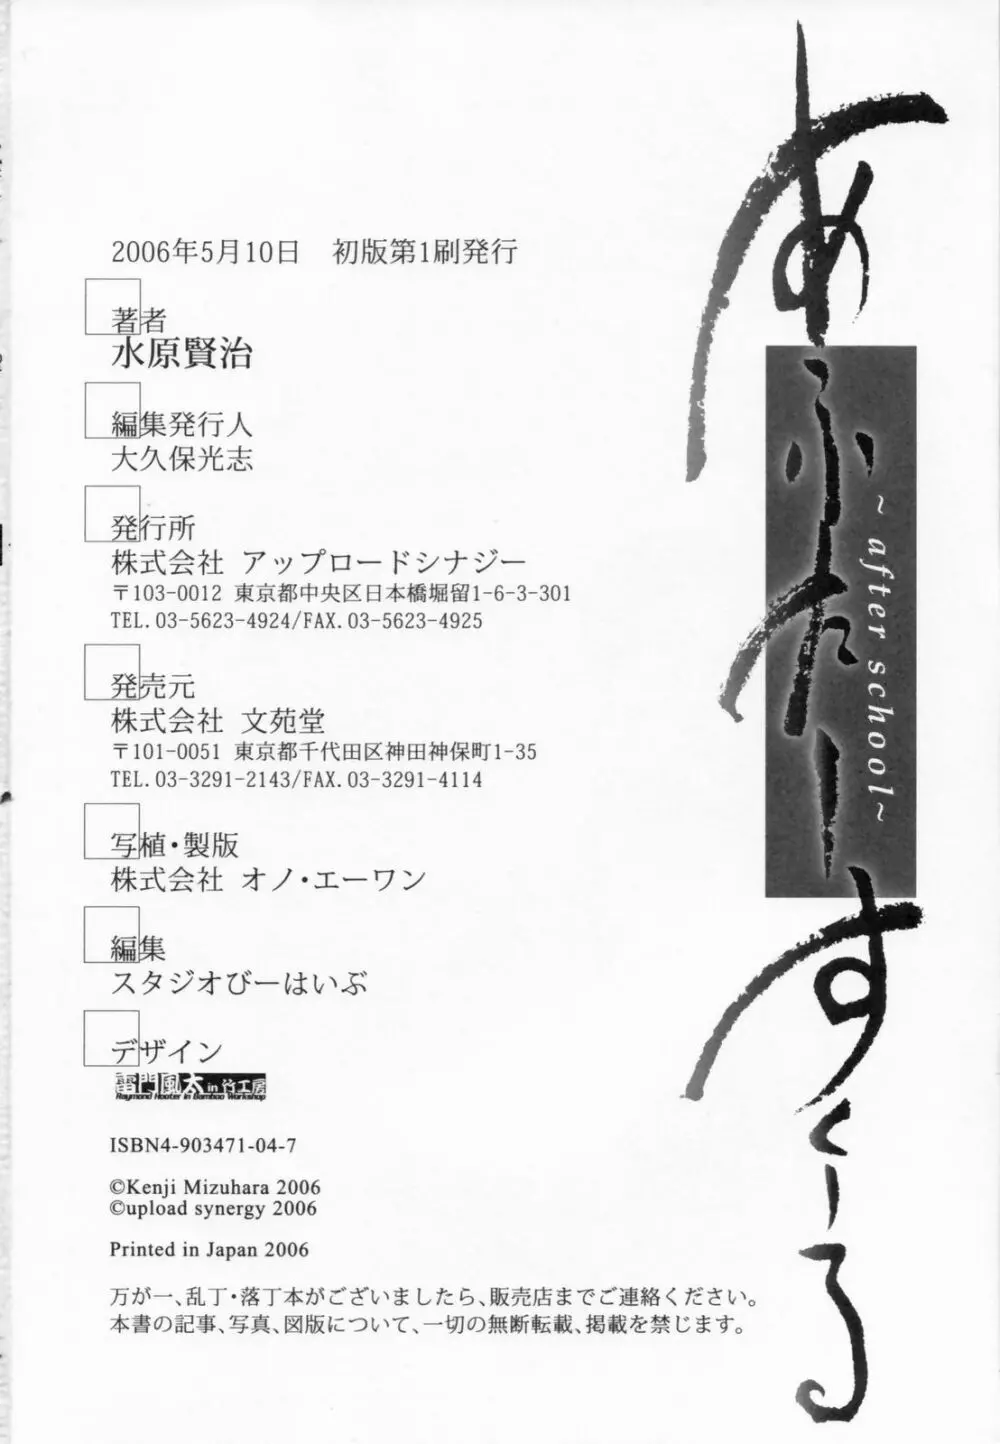 あふたーすくーる
~after school~
2006年5月10日　初版第1刷発行
著者
水原賢治
編集発行人
大久保光志
発行所
株式会社 アップロードシナジー
〒103-0012 東京都中央区日本橋堀留1-6-3-301
TEL. 03-5623-4924/FAX. 03-5623-4925
発売元
株式会社 文苑堂
〒101-0051 東京都千代田区神田神保町1-35
TEL. 03-3291-2143/FAX. 03-3291-4114
写植・製版
株式会社 オノ・エーワン
編集
スタジオびーはいぶ
デザイン
雷門風太 in 竹工房
Raymond Hooter in Bamboo Workshop
ISBN4-903471-04-7
©Kenji Mizuhara 2006
©upload synergy 2006
Printed in Japan 2006
万が一、乱丁・落丁本がございましたら、販売店までご連絡ください。
本書の記事、写真、図版について、一切の無断転載、掲載を禁じます。